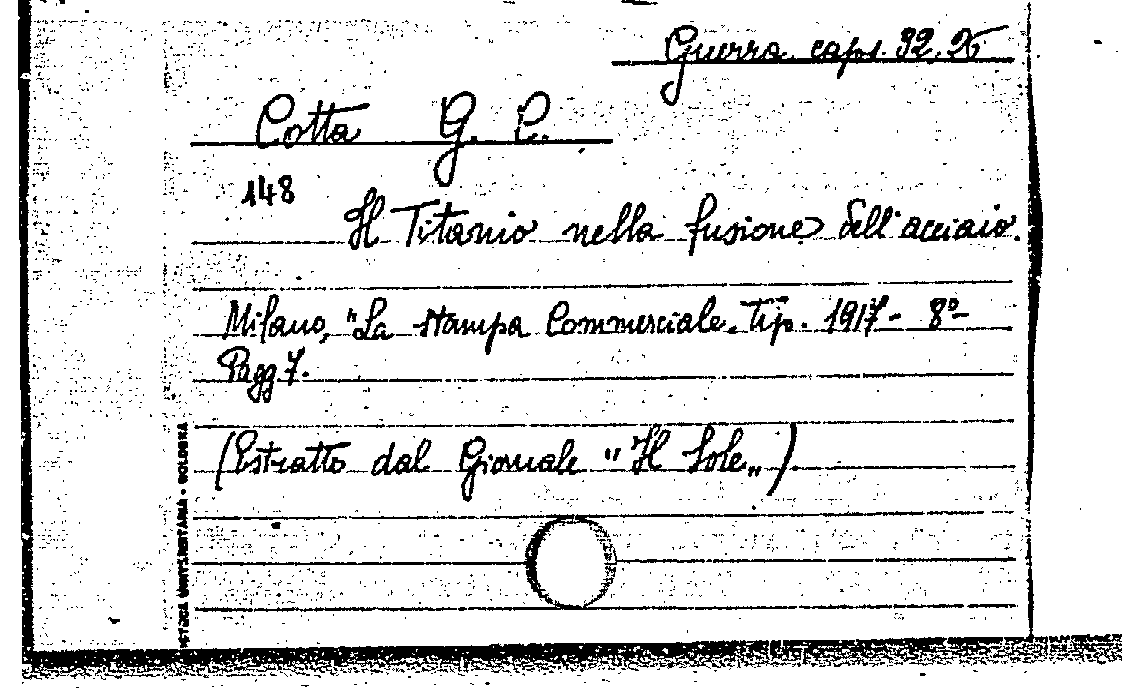 Guerra caps. 92. 26
Cotta G. C.
148
Il Titanio nella fusione dell'acciaio.
Milano, "La stampa Commerciale. Tip. 1917 - 8º -
Pagg 7.
(Estratto dal Giornale "Il Sole„)
BOLOGNA